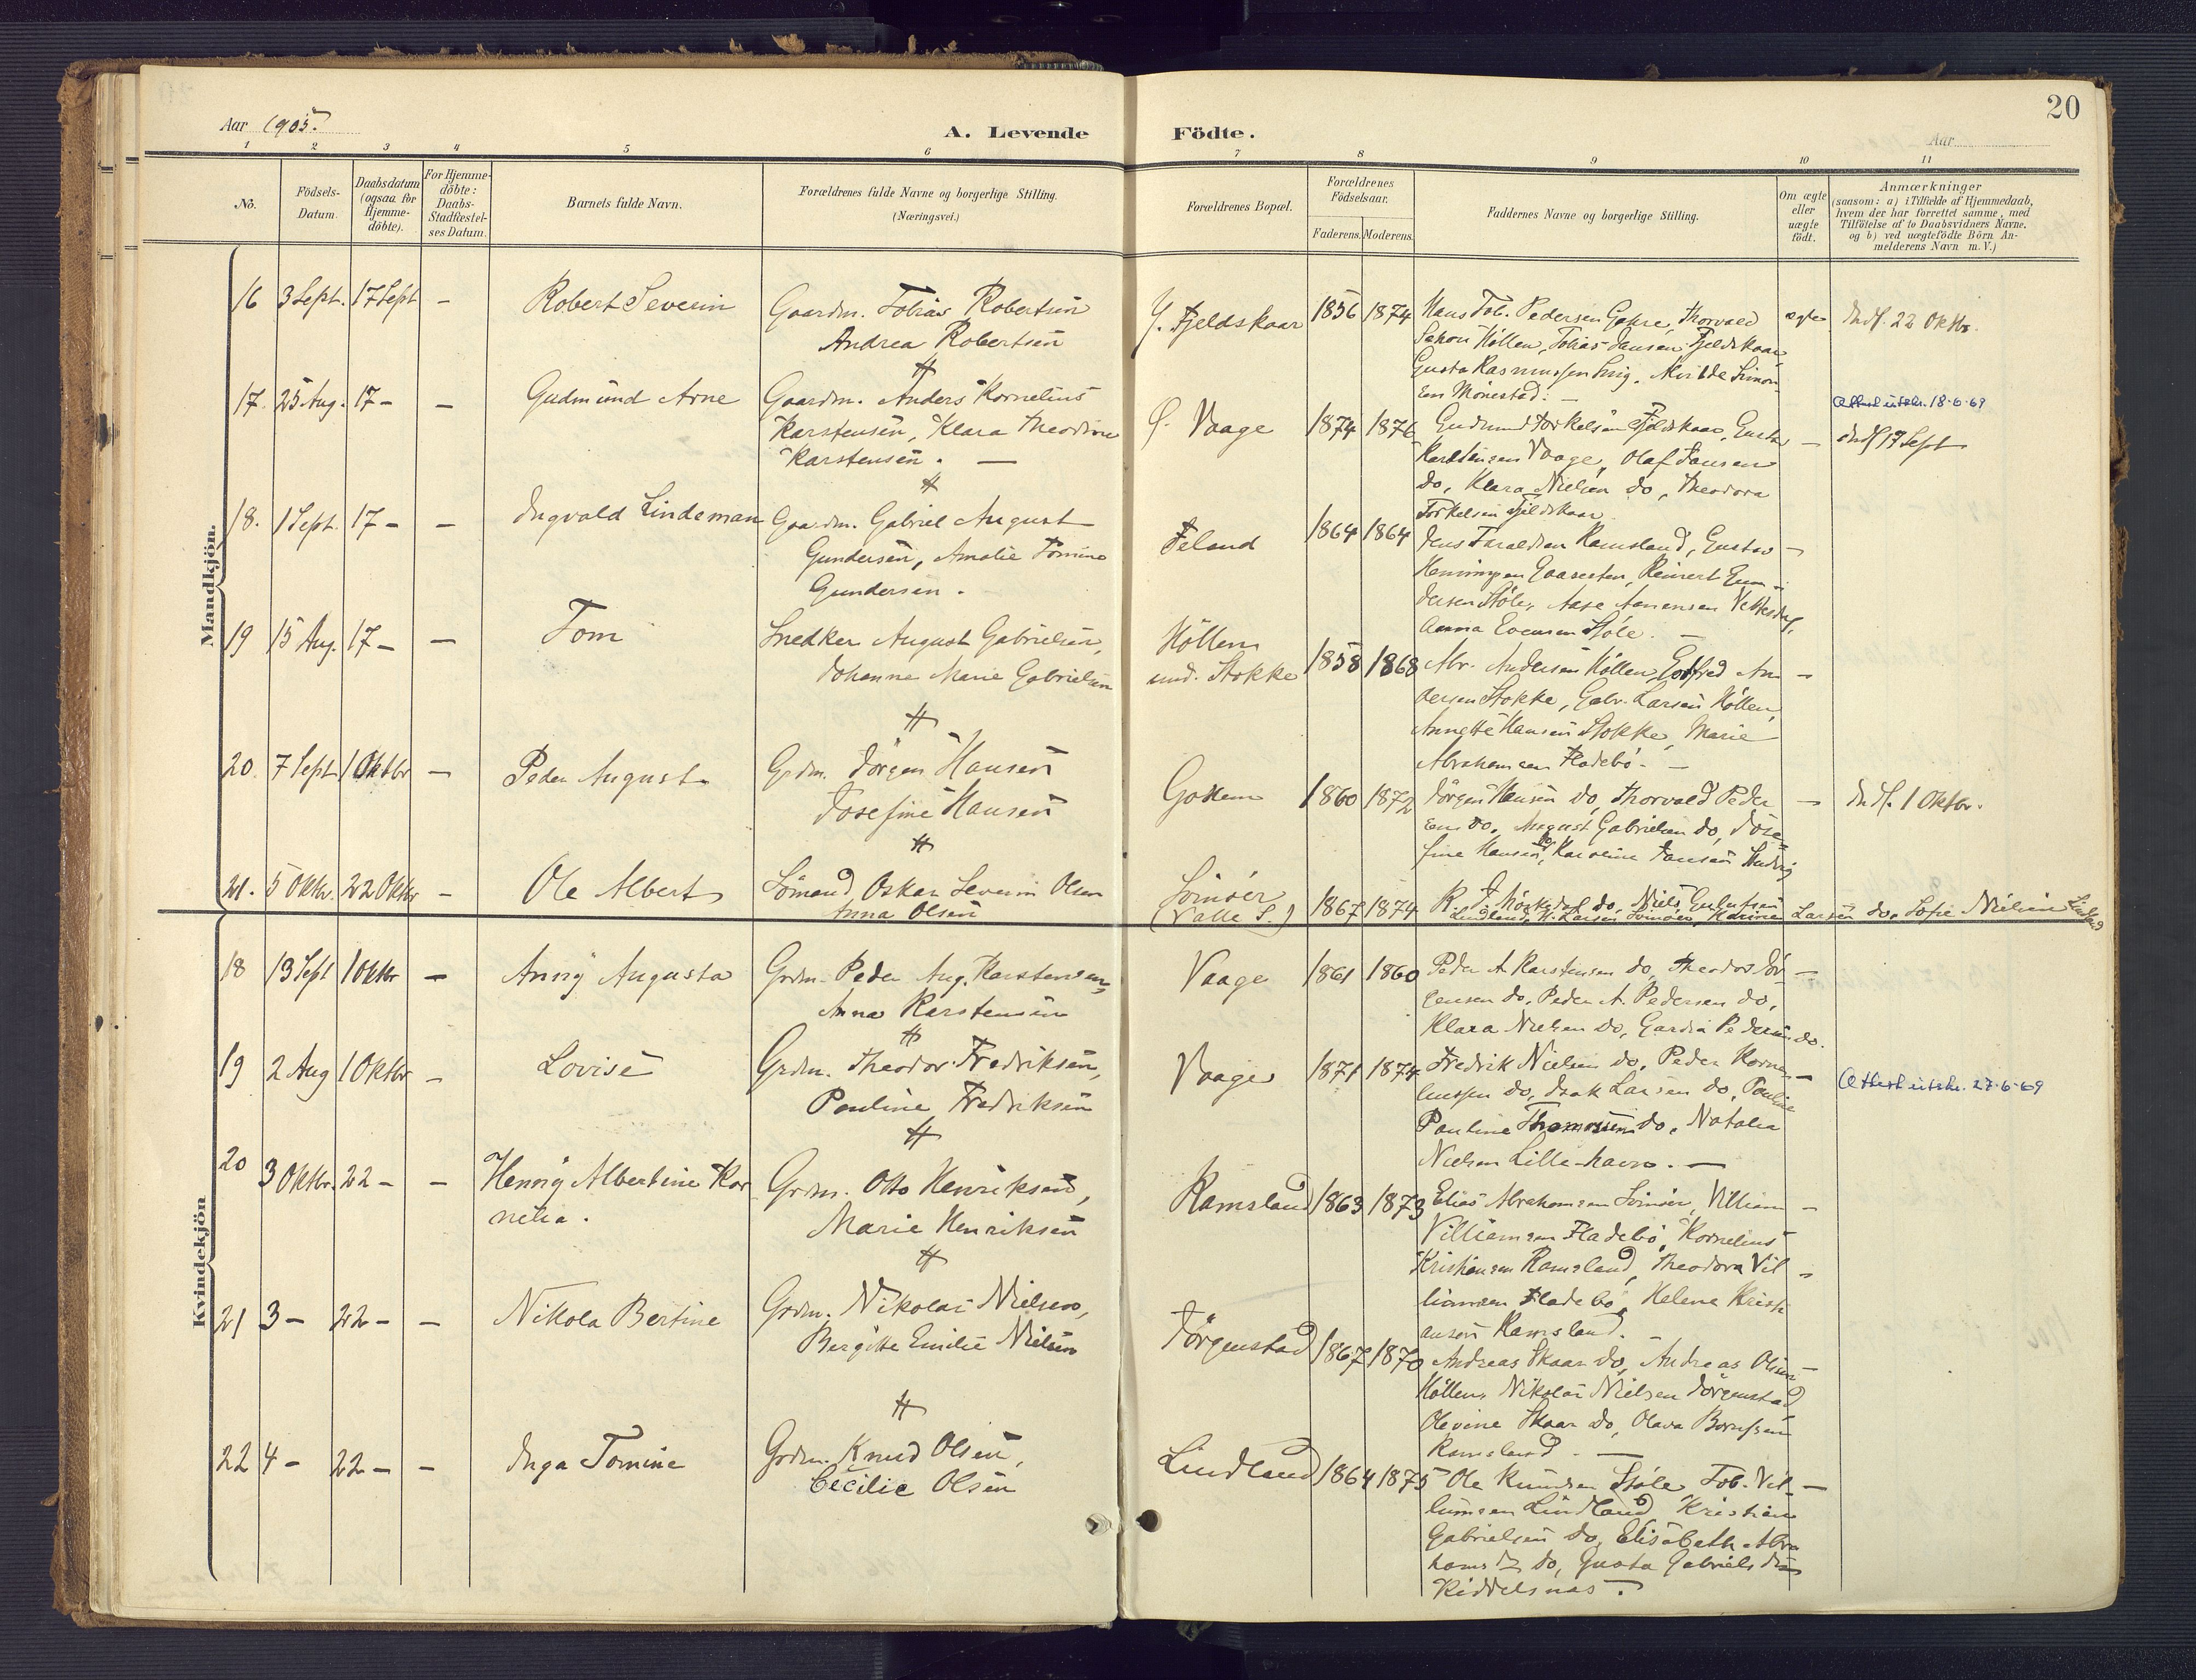 20
Aar 1905.
A. Levende Födte.
Aar
1 2 3 4 5 6 7 8 9 10 11
No.
Födsels-
Datum.
Daabsdatum
(ogsaa for
Hjemme-
döbte).
For Hjemme-
döbte:
Daabs-
Stadfæstel-
ses Datum.
Barnets fulde Navn.
Forældrenes fulde Navne og borgerlige Stilling.
(Næringsvei.)
Forældrenes Bopæl.
Forældrenes
Födselsaar.
Faderens. Moderens.
Faddernes Navne og borgerlige Stilling.
Om ægte
eller
uægte
födt.
Anmærkninger
(saasom: a) i Tilfælde af Hjemmedaab,
hvem der har forrettet samme, med
Tilföielse af to Daabsvidners Navne,
og b) ved uægtefödte Börn An-
melderens Navn m.V.)
Mandkjön.
16 3 Sept. 17 Sept - Robert Severin
Gaardm. Tobias Robertsen
Andrea Robertsen
Y. Fjeldskaar 1856 1874
Hans Tob. Pedersen Gahre, Thorvald
Höllen, Tobias Jansen Fjeldskaar,
Gusta Rasmussen
Mönestad. -
ægte
Indf. 22 Oktbr.
17. 25 Aug. 17 - - Gudmund Arne
Gaardm. Anders Kornelius
Karstensen, Klara Theodine
Karstensen. -
Vaage 1874 1876
Gudmund Torkelsen Fjeldskaar, Gustav
Karstensen Vaage, Olaf Jansen
do, Klara Nielsen do, Theodora
Torkelsen Fjeldskaar
-
Attest utskr. 18-6-69
Indf 17 Sept
18. 1 Sept. 17 - - Ingvald Lindeman
Gaardm. Gabriel August
Gundersen, Amalie Tomine
Gundersen.
Feland 1864 1864
Jens Taraldsen Ramsland, Gustav
Henningsen Reinert Gun-
dersen Stöle, Aase Aanensen
Anna Evensen Stöle. -
-
19 15 Aug. 17 - - Tom
Snedker August Gabrielsen,
Johanne Marie Gabrielsen
Höllen
und. Stokke 1858 1868
Abr. Andersen Höllen, Gotfred An-
dersen Stokke, Gabr. Larsen Höllen,
Annette Hansen Stokke, Marie
Abrahamsen Fladebö. -
-
20. 7 Sept 1 Oktbr - Peder August
Grdm. Jörgen Hansen
Josefine Hansen
1860 1872
Jörgen Hansen do, Thorvald Peder-
sen do, August Gabrielsen do, Jose-
fine Hansen do, Karoline Jansen
-
Indf. 1 Oktbr.
21. 5 Oktbr. 22 Oktbr - Ole Albert
Sömand Oskar Severin Olsen
Anna Olsen
Svinöer
(Valle S.) 1867 1874
do, Niels
Lindland, Larsen Svinöer, Larsen do, Sofie Nielsen Lindland
Kvindekjön
18 13 Sept 1 Oktbr - Anny Augusta
Grdm. Peder Aug. Karstensen,
Anna Karstensen
Vaage 1861 1860
Peder A Karstensen do, Theodor Jör-
gensen do, Peder A. Pedersen do,
Klara Nielsen do, Pedersen do.
-
19 2 Aug 1 Oktbr - Lovise
Grdm. Theodor Fredriksen,
Pauline Fredriksen
Vaage 1871 1874
Fredrik Nielsen do, Peder Korne-
liussen do, Isak Larsen do, Pauline
Pauline Thomassen do, Natalia
Nielsen Lille-havn. -
-
Attest utskr. 27-6-69
20 3 Oktbr. 22 - - Henny Albertine Kor
nelia.
Grdm. Otto Henriksen,
Marie Henriksen
Ramsland 1863 1873
Elias Abrahamsen Svinöer, Villiam
Villiamsen Fladebö, Kornelius
Kristiansen Ramsland, Theodora Vil-
liamsen Fladebö, Helene Kristi-
ansen Ramsland.
-
21 3 - 22 - - Nikola Bertine
Grdm. Nikolai Nielsen,
Bergitte Emilie Nielsen
Jörgenstad 1867 1870
Andreas Skaar do, Andreas Olsen
Höllen, Nikolai Nielsen Jörgenstad,
Olevine Skaar do, Olava Berntsen
Ramsland. -
-
22 4 - 22 - - Inga Tomine
Grdm. Knud Olsen,
Cecilie Olsen
Lindland 1864 1875
Ole Knudsen Stöle Tob. Vil-
lumsen Lindland, Kristian
Gabrielsen do, Elisabeth Abra-
hamsd do, Gusta Gabrielsdtr
-